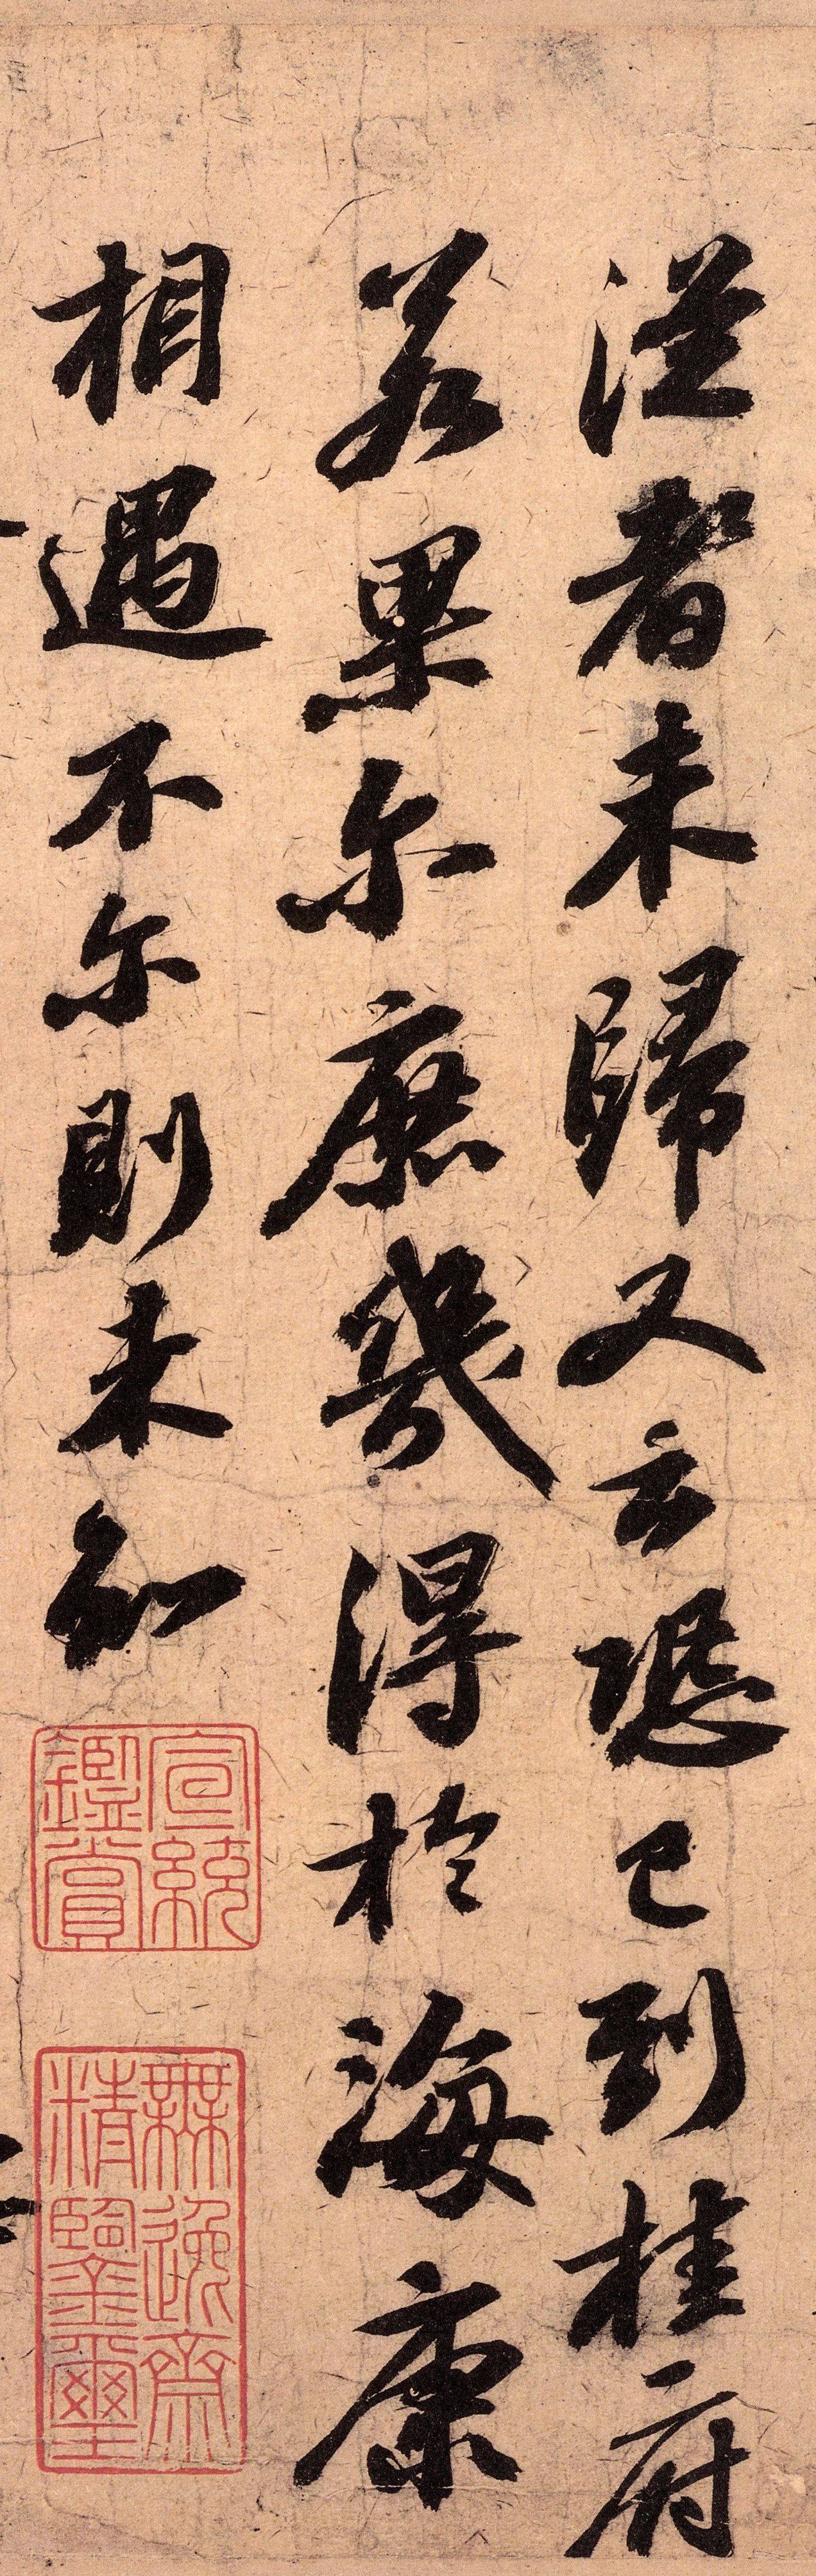 從者未歸又云恐已到桂府
若果尔庶幾得於海康
相遇不尔則未知
宣統
鑑賞
無逸齋
精鑒璽